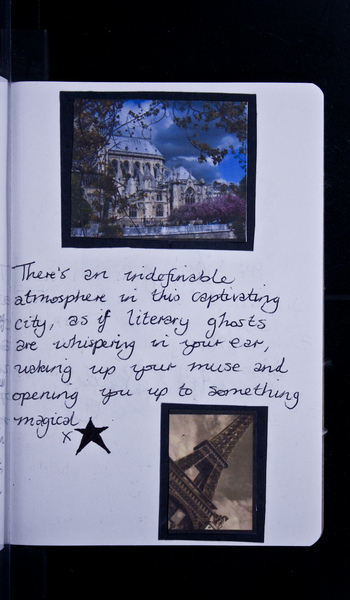 There's an indefinable
atmosphere in this captivating
city, as if literary ghosts
are whispering in your ear,
waking up your muse and
opening you up to something
magical
x